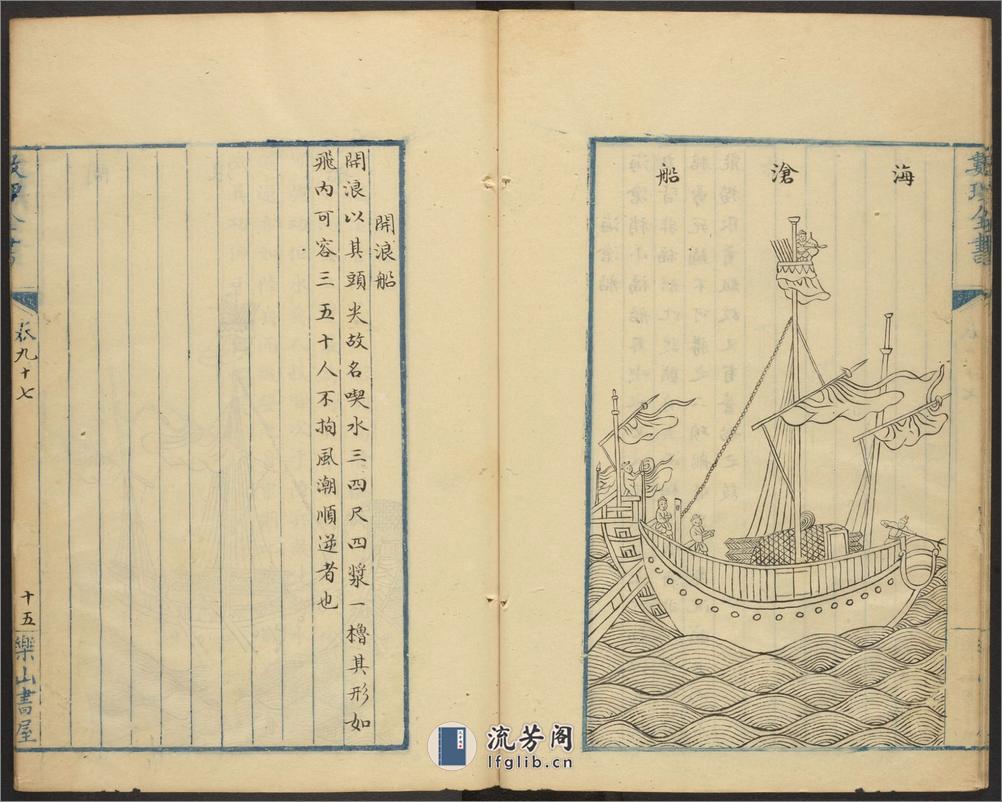 海滄船
開浪船
開浪以其頭尖故名喫水三四尺四槳一櫓其形如
飛内可容三五十人不拘風潮順逆者也
卷九十七
十五
樂山書屋
流芳阁
lfglib.cn